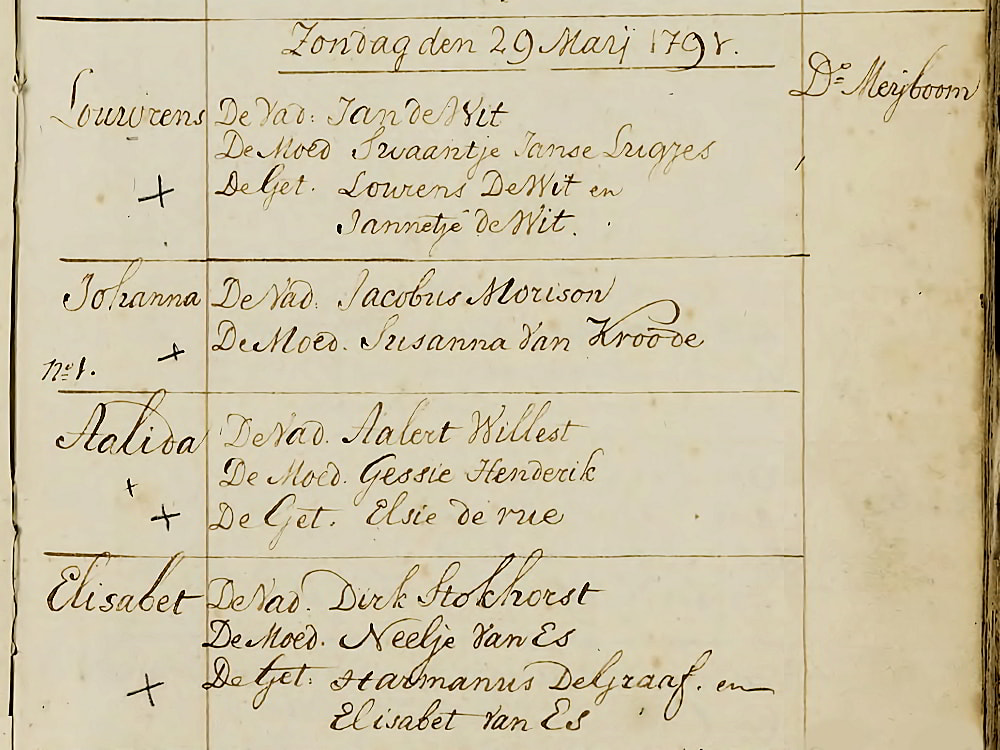 Zondag den 29 Marij 1791.
Ds Meijboom
Louwrens De Vad: Jan de Wit
De Moed Swaantje Janse
De Get. Lourens De Wit en
Jannetje de Wit.
Johanna De Vad. Jacobus Morison
De Moed. Susanna Van Kroode
no 1.
Aalida De Vad. Aalert Willest
De Moed. Gessie Henderik
De Get. Elsie de rue
Elisabet De Vad. Dirk Stokhorst
De Moed. Neelje Van Es
De Get: Harmanus De Graaf. en
Elisabet Van Es